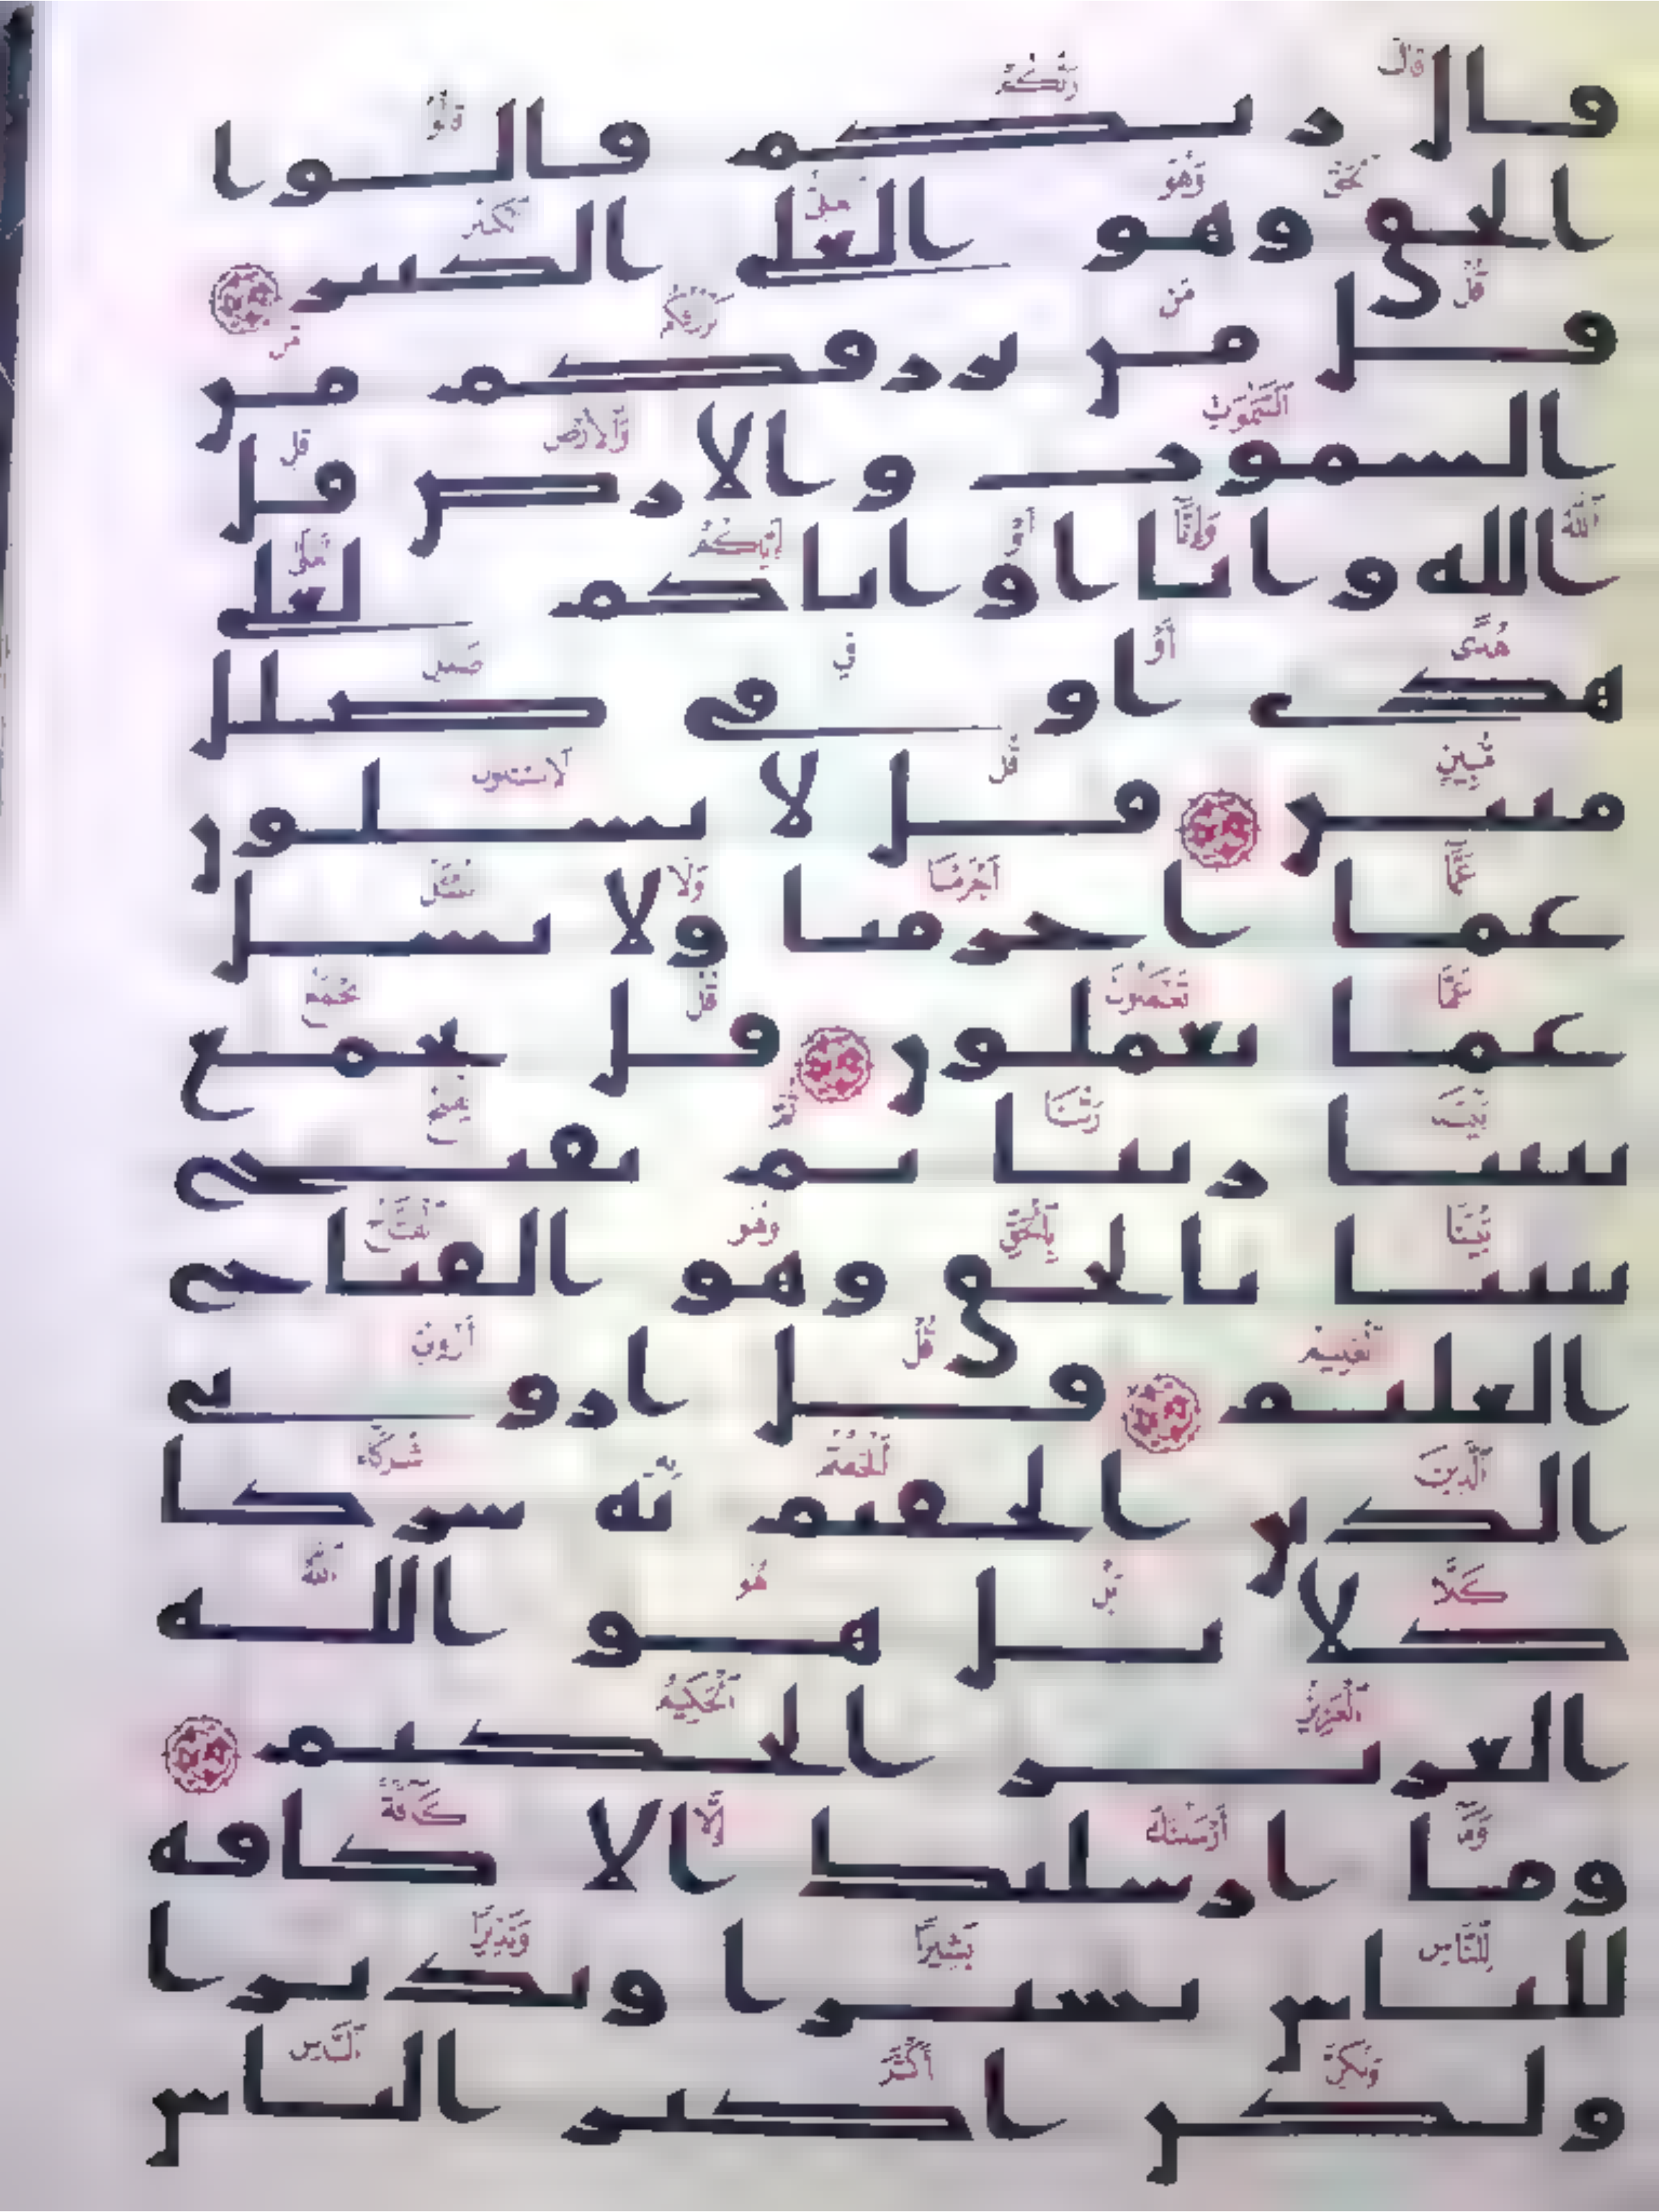 قال ربكم قالوا
الحق وهو العلي الكبير
قل من يرزقكم من
السموت والارض قل
الله وانا او اياكم لعلى
هدى او في ضلل
مبين قل لا تسلون
عما اجرمنا ولا نسل
عما تعملون قل يجمع
بيننا ربنا ثم يفتح
بيننا بالحق وهو الفتاح
العليم قل اروني
الذين الحقتم به شركا
كلا بل هو الله
العزيز الحكيم
وما ارسلنك الا كافه
للناس بشيرا ونذيرا
ولكن اكثر الناس